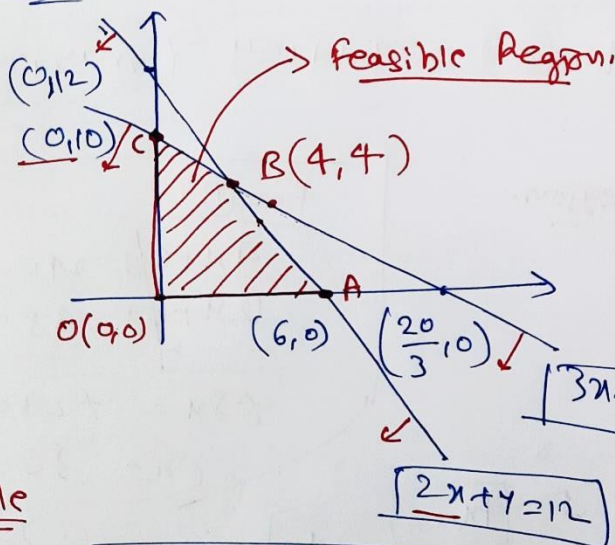 Feasible Region.
(0,12)
(0,10) C
B(4,4)
A
O(0,0)
(6,0)
(20/3,0)
3x
2x+y=12